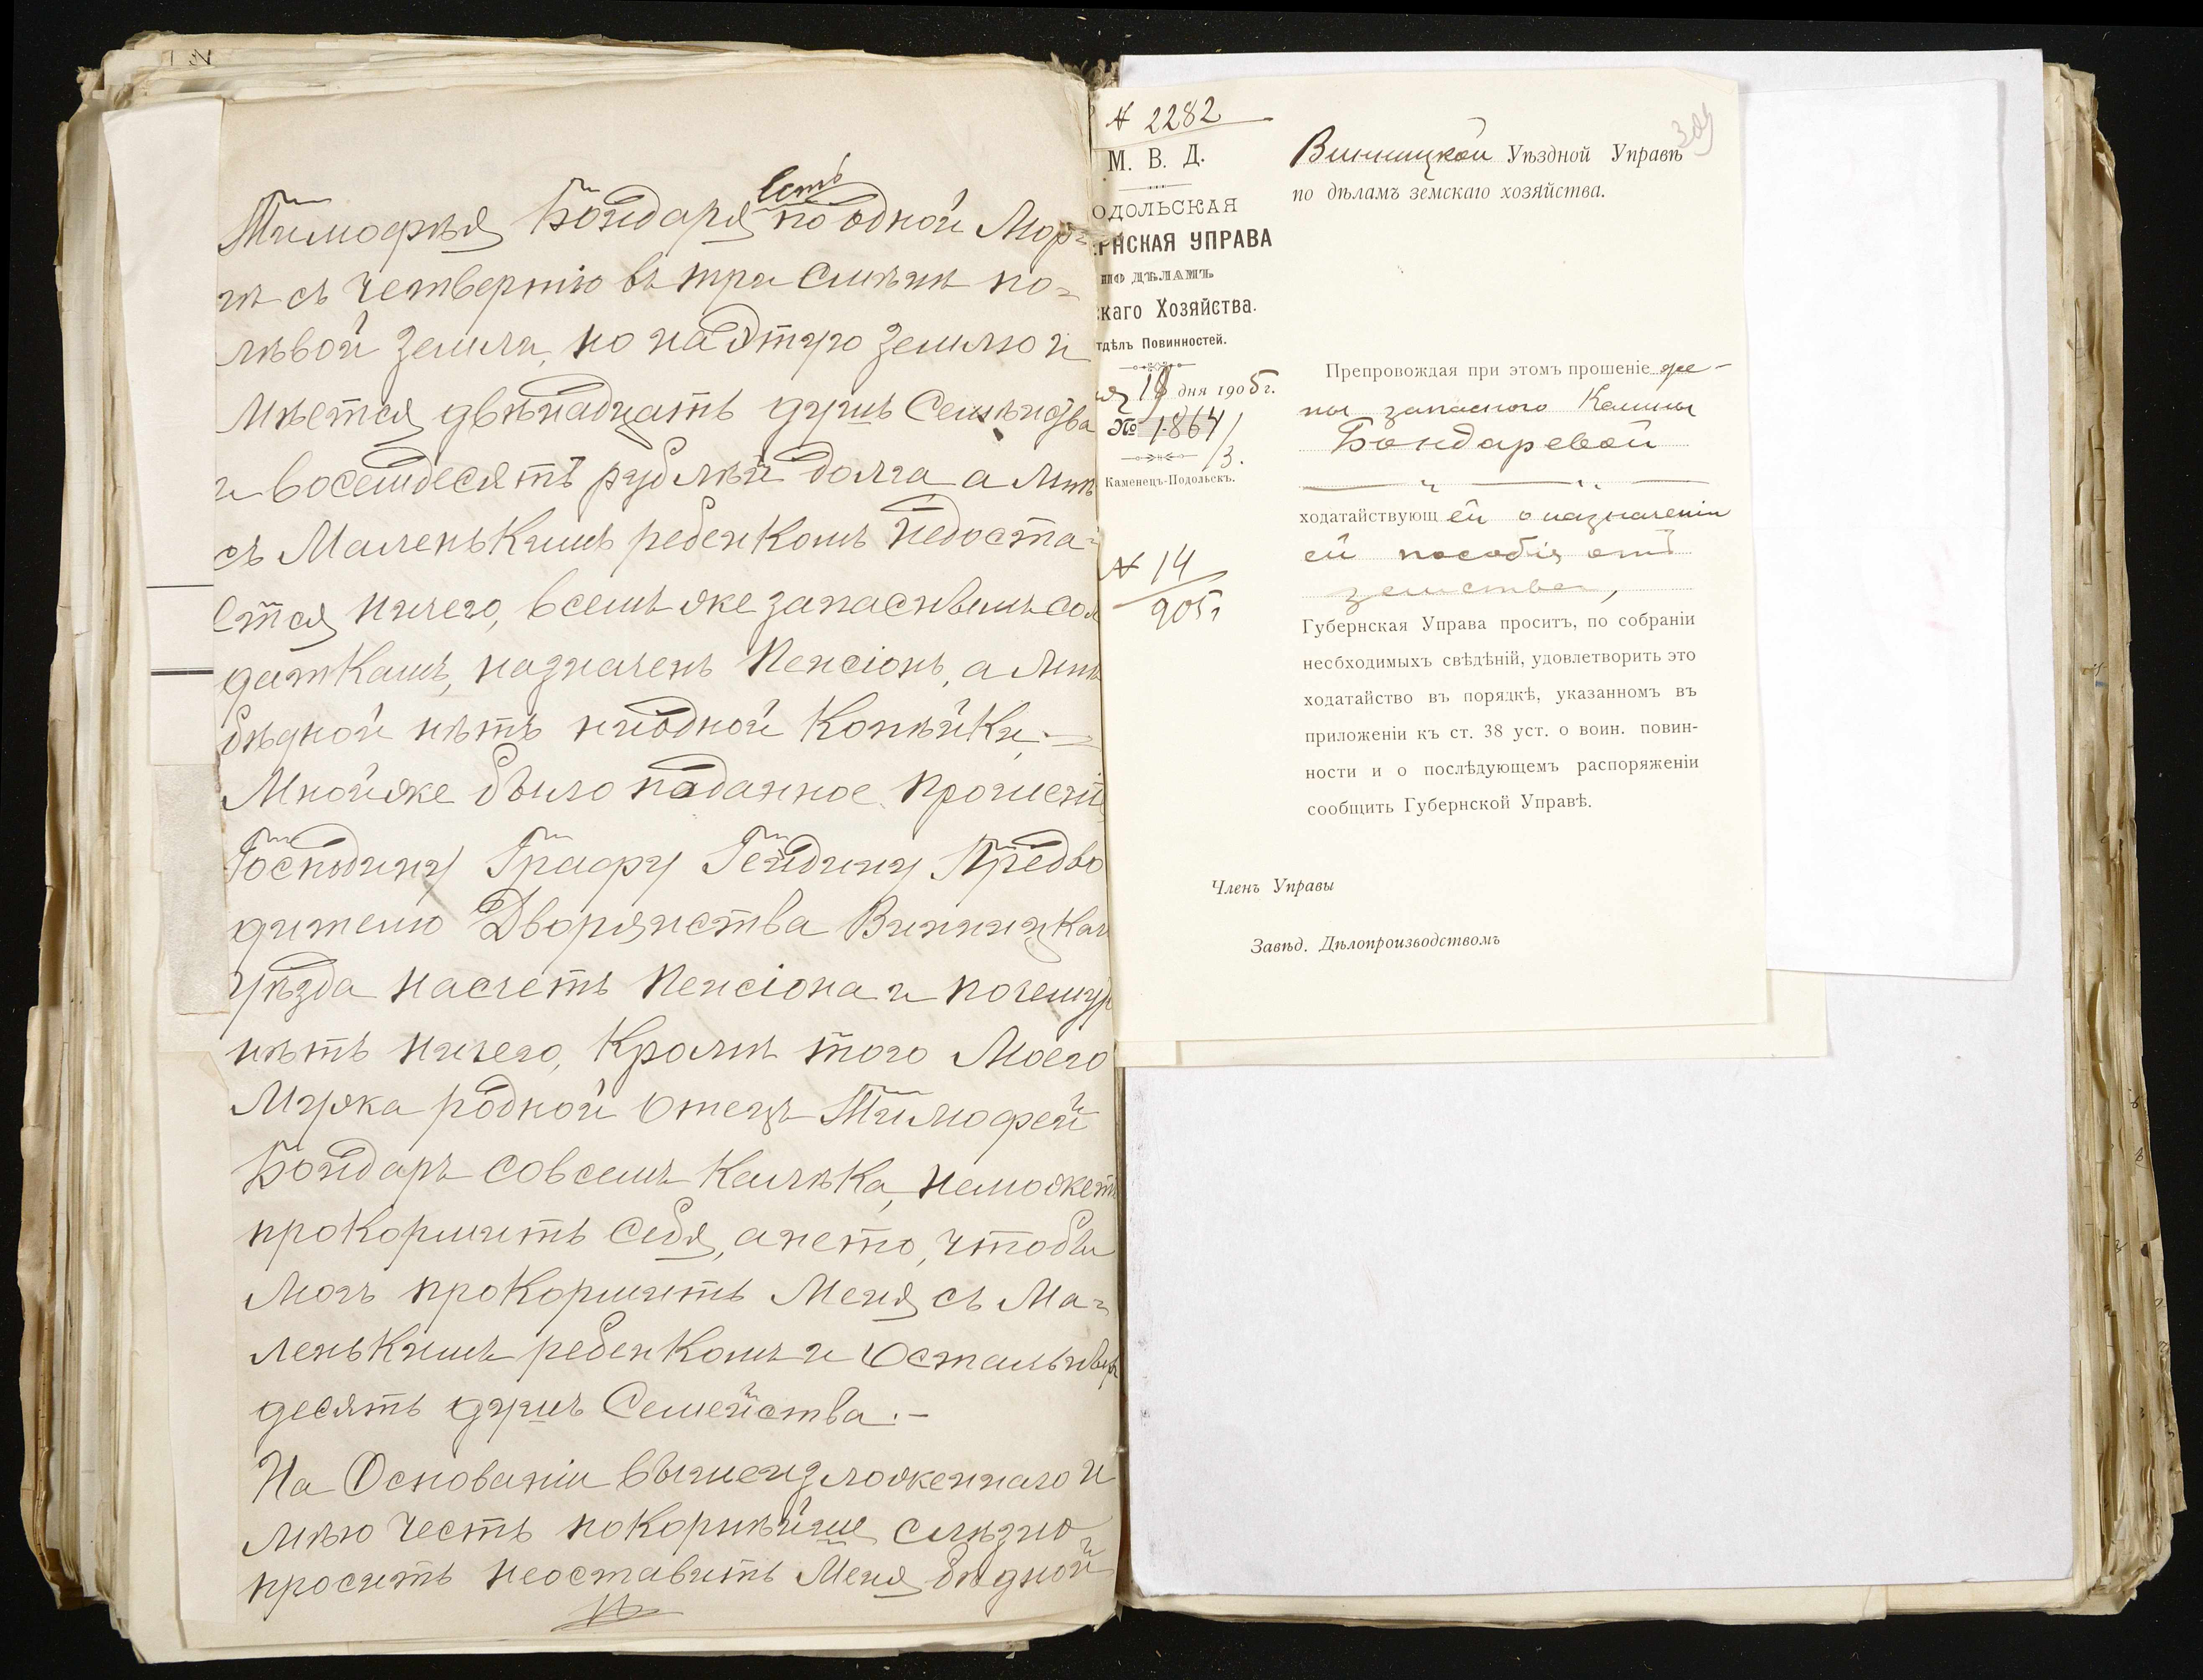 Тимофѣя Бондаря есть по одной Мор-
гѣ съ четвертію въ три смѣнѣ по=
лѣвой земли, но на этую землю и
мѣется двѣнадцать душъ Семѣиства
и восемдесятъ рублѣй долга а Мнѣ
съ Маленькимъ ребенкомъ недоста-
ется ничего, всемъ же запаснымъ сол
даткамъ, назначенъ Пенсіонъ, а Мнѣ
бѣдной нѣтъ ниодной Копѣйки.—
Мнойже было поданное прошеніе
Господину Графу Гейдину Предво
дителю Дворянства Винницкаго
уѣзда насчетъ Пенсіона и почему
нѣтъ ничего, Кромѣ того Моего
Мужа родной Отецъ Тимофей
Бондаръ совсемъ Калѣка, неможетъ
прокормить себя, а нето, чтобы
Могъ прокормить Меня съ Ма-
ленькимъ ребенкомъ и Остальныхъ
десять душъ Семейства.—
На Основаніи вышеизложеннаго и
мѣю честь покорнѣйше слѣзно
просить неоставить Меня бѣдной
№ 2282
М. В. Д.
ОДОЛЬСКАЯ
РНСКАЯ УПРАВА
ПО ДѢЛАМЪ
скаго Хозяйства.
тдѣлъ Повинностей.
19 дня 1905 г.
№ 1864/3.
Каменецъ-Подольскъ.
№ 14
905 г
Винницкой Уѣздной Управѣ
по дѣламъ земскаго хозяйства.
Препровождая при этомъ прошеніе же-
ны запасного Калины
Бондаревой
ходатайствующей о назначеніи
ей пособія отъ
земства,
Губернская Управа проситъ, по собраніи
несбходимыхъ свѣдѣній, удовлетворить это
ходатайство въ порядкѣ, указанномъ въ
приложеніи къ ст. 38 уст. о воин. повин-
ности и о послѣдующемъ распоряженіи
сообщить Губернской Управѣ.
Членъ Управы
Завѣд. Дѣлопроизводствомъ